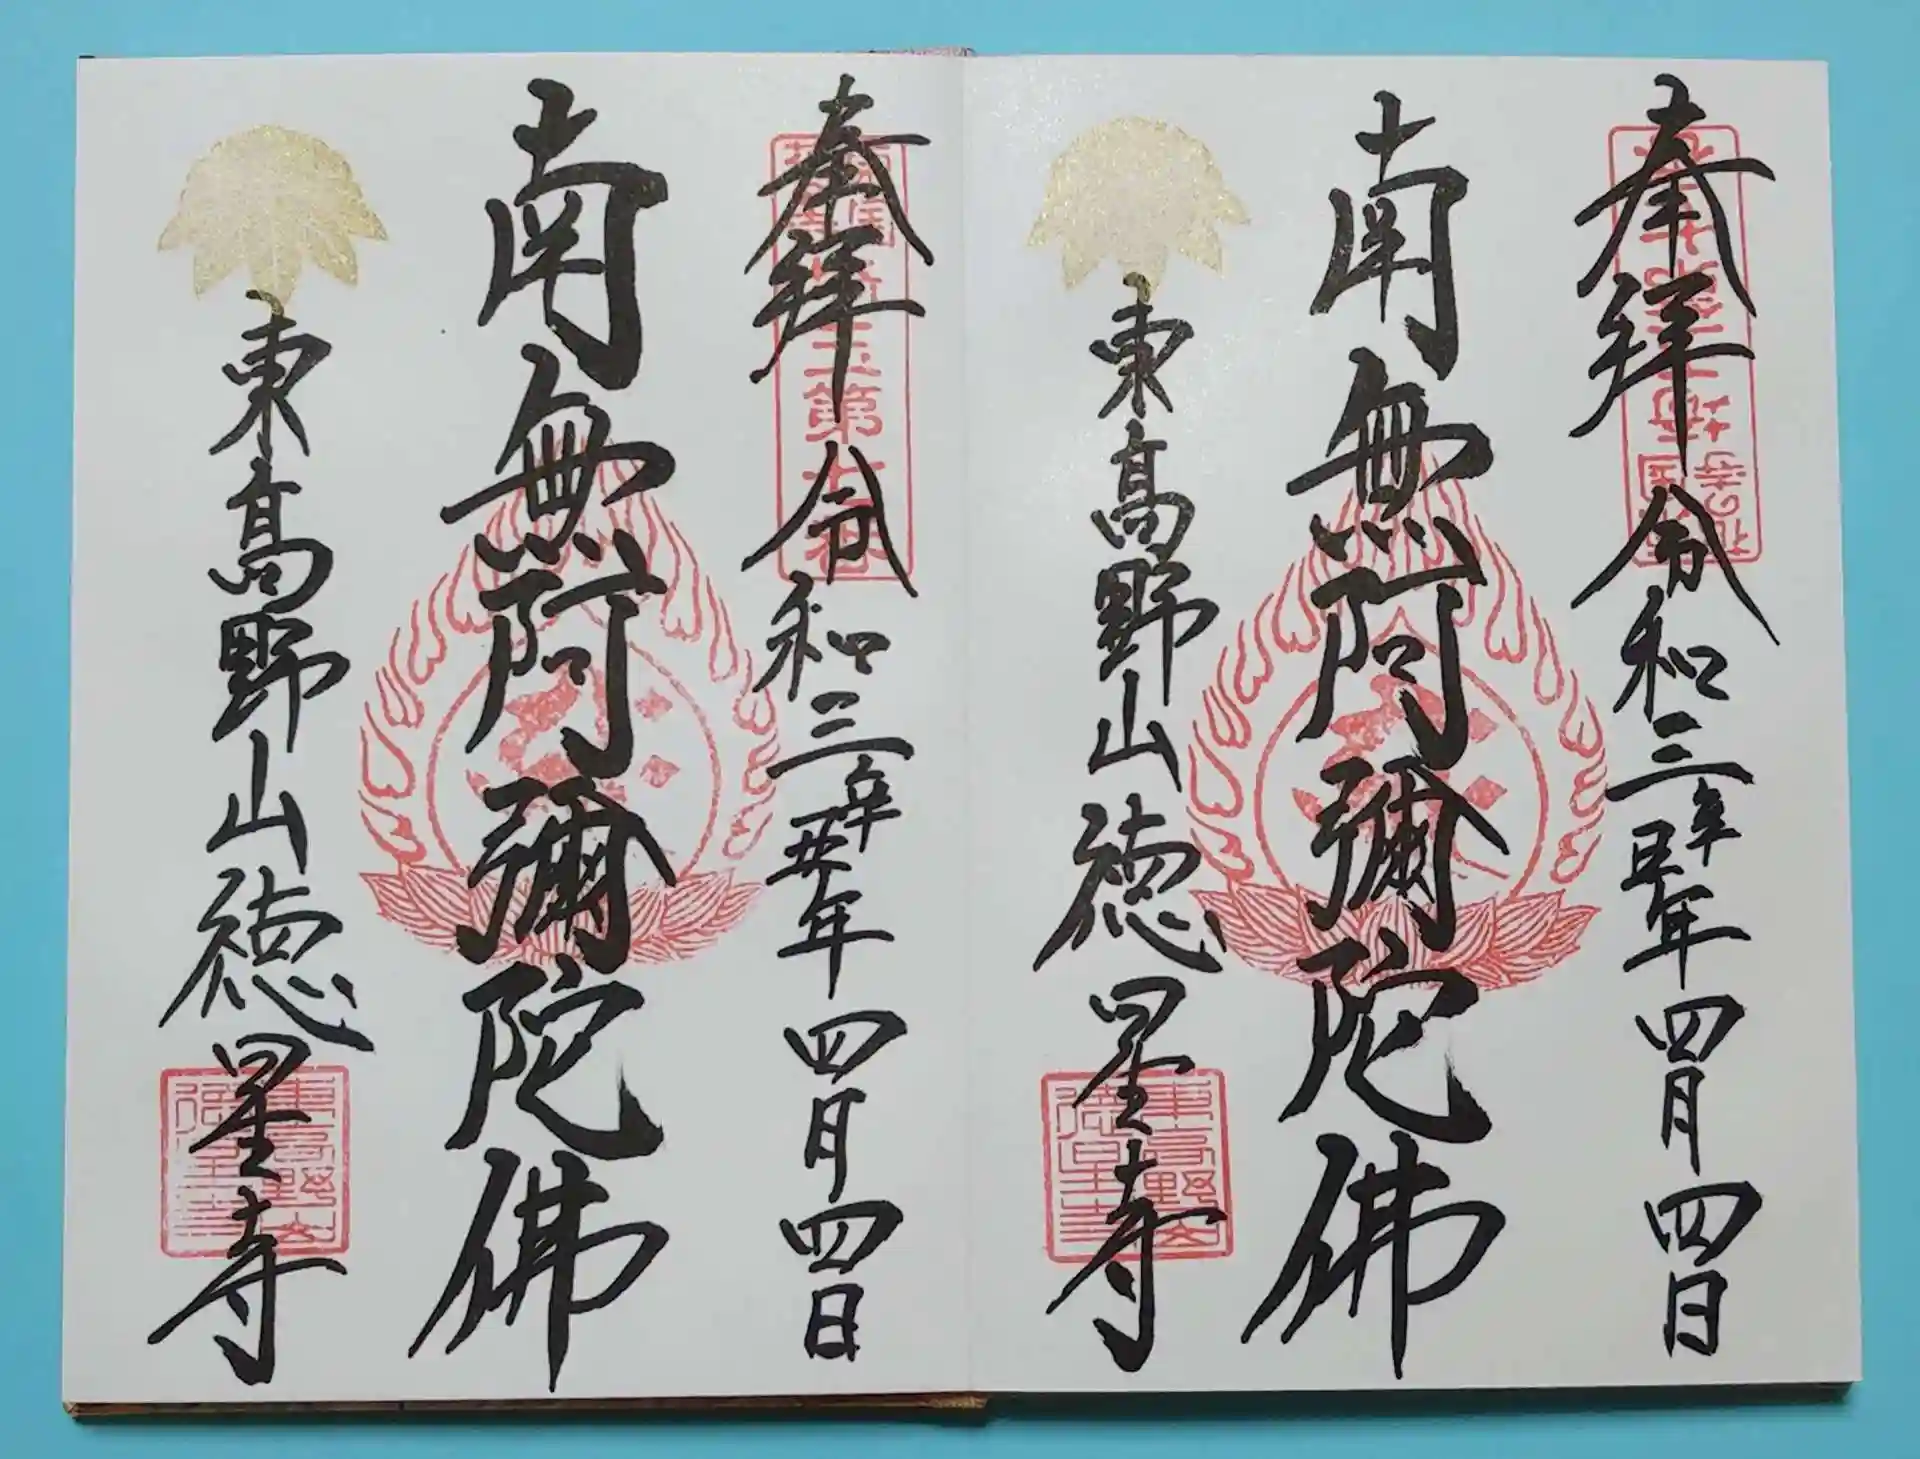 奉拜 令和三辛丑年四月四日
南無阿彌陀佛
東高野山徳星寺
東高野山
徳星寺
奉拜 令和三辛丑年四月四日
南無阿彌陀佛
東高野山徳星寺
東高野山
徳星寺